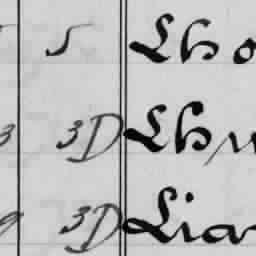 5 Lho
3 3D Lhu
3D Lia